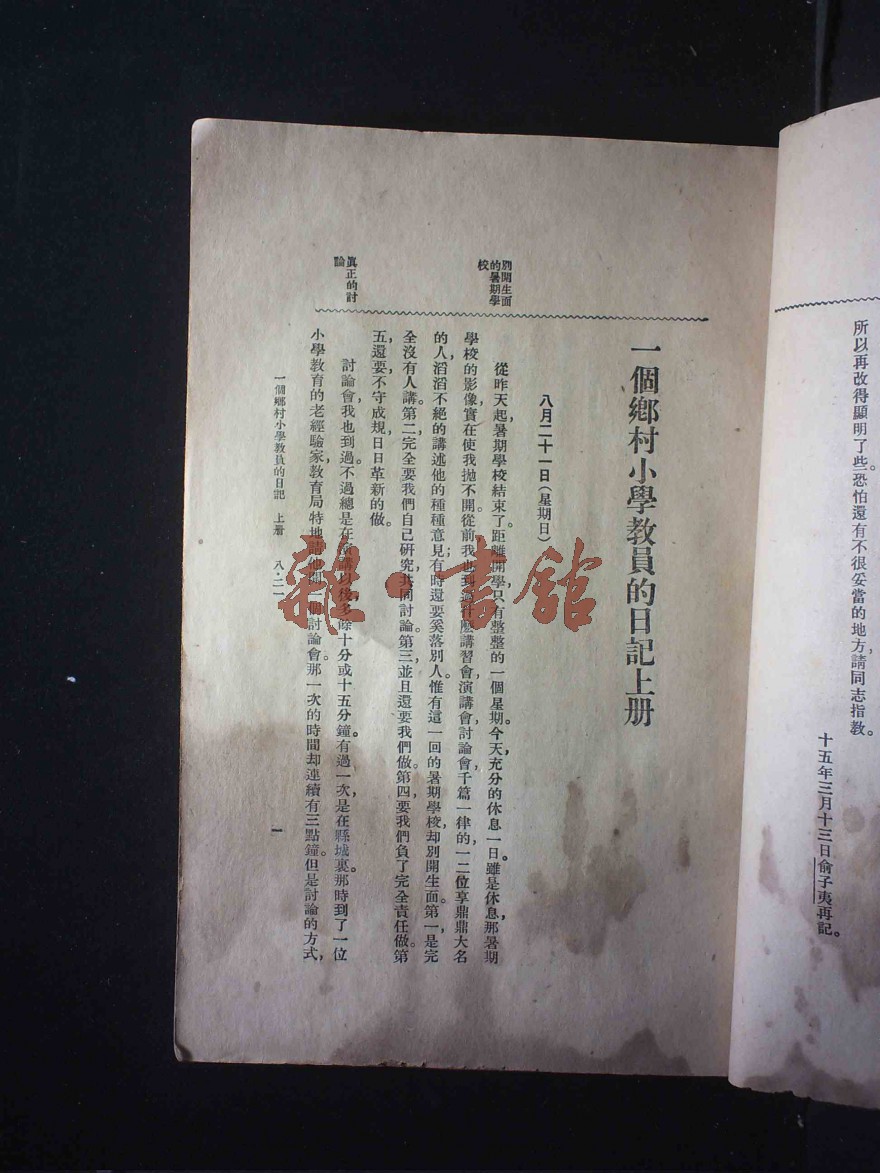 所以再改得顯明了些。恐怕還有不很妥當的地方，請同志指教。
十五年三月十三日俞子夷再記。
一個鄉村小學教員的日記上册
八月二十一日（星期日）
別開生面
的暑期學
校
從昨天起，暑期學校結束了。距離開學，只有整整的一個星期。今天充分的休息一日。雖是休息，那暑期
學校的影像，實在使我拋不開。從前我也到過什麼講習會，演講會，討論會，千篇一律的，一二位享鼎鼎大名
的人，滔滔不絕的講述他的種種意見；有時還要奚落別人。惟有這一回的暑期學校，却別開生面。第一，是完
全沒有人講。第二，完全要我們自己研究，共同討論。第三，並且還要我們做。第四，要我們負了完全責任做。第
五，還要不守成規，日日革新的做。
眞正的討
論
討論會，我也到過。不過總是在演講以後，多餘十分或十五分鐘。有過一次，是在縣城裏。那時到了一位
小學教育的老經驗家，教育局特地請他開一個討論會。那一次的時間却連續有三點鐘。但是討論的方式，
一個鄉村小學教員的日記 上册 八·二一
一
雜·書館